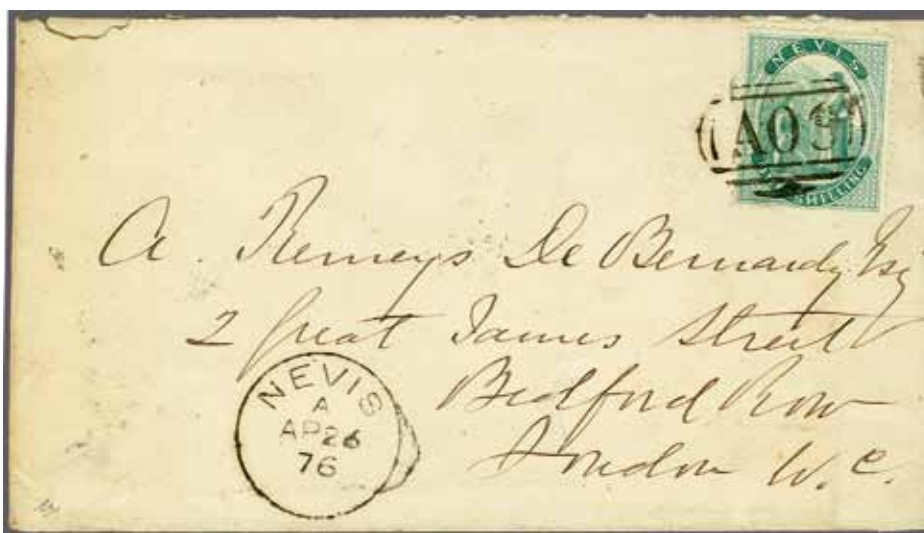 NEVIS
SHILLING
A09
A. Kemeys De Bernardy Esq
2 Great James Street
Bedford Row
London W.C.
NEVIS
A
AP26
76